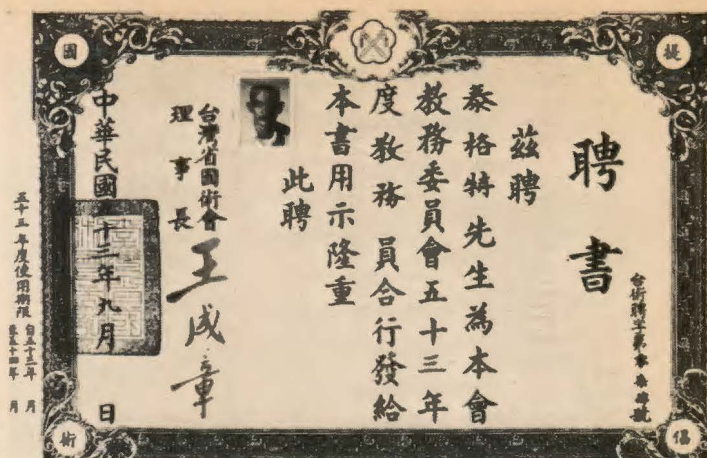 聘書
台術聘字第
號
茲聘
泰格特先生為本會
教務委員會五十三年
度教務 員合行發給
本書用示隆重
此聘
台灣省國術會
理事長
王成章
中華民國 十三年九月 日
五十三年度使用期限
自五十三年 月
至五十四年 月
提
倡
國
術